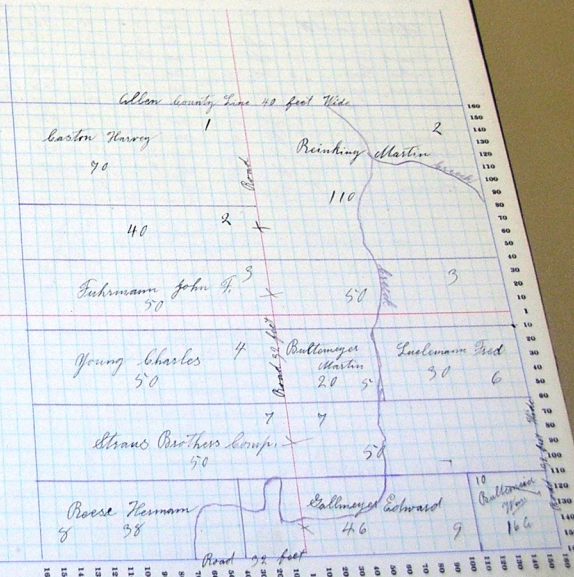 Allen County Line 40 feet Wide
1
2
Gaston Harvey
70
Reinking Martin
creek
Road
110
40
2
3
3
Fuhrmann John F.
50
50
creek
Young Charles
50
4
Bultemeyer
Martin
20
5
Luelemann Fred
30
6
Road 32 feet
7
7
Straus Brothers Comp.
50
50
Reese Herman
8
38
Gallmeyer Edward
46
9
10
166
Road 32 feet Wide
Road 32 feet
160
150
140
130
120
110
100
90
80
70
60
50
40
30
20
10
1
10
20
30
40
50
60
70
80
90
100
110
120
130
140